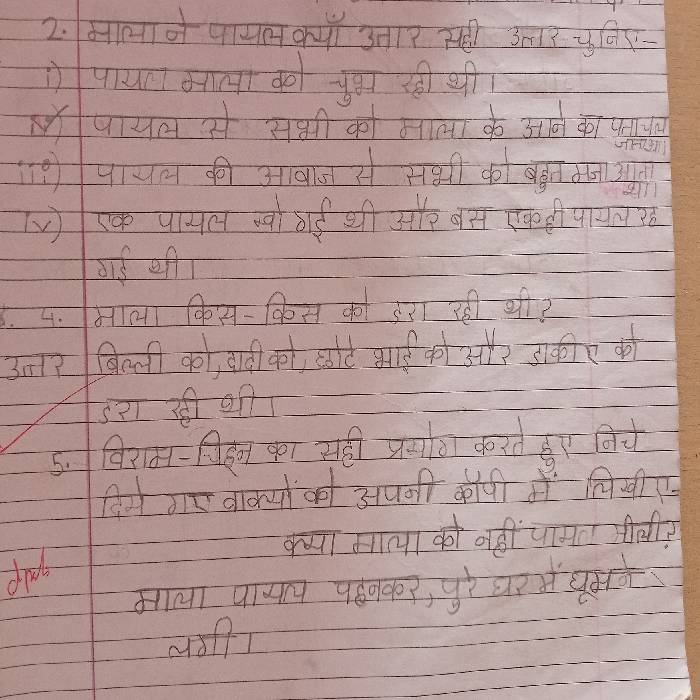 2. माला ने पायल क्याँ उतार सही उत्तर चुनिए-
i) पायल माला को चुभ रही थी।
पायल से सभी को माला के आने का पता चल जाता था।
iii) पायल की आवाज से सभी को बहुत मजा आता था।
iv) एक पायल खो गई थी और बस एक ही पायल रह
गई थी।
4. माला किस-किस को डरा रही थी?
उत्तर बिल्ली को, दादी को, छोटे भाई को और डाकीए को
डरा रही थी।
5. विराम-चिह्न का सही प्रयोग करते हुए निचे
दिये गए वाक्यों को अपनी कॉपी में लिखीए-
क्या माला को नहीं पायल मीली?
माला पायल पहनकर, पुरे घर में घूमने
लगी।